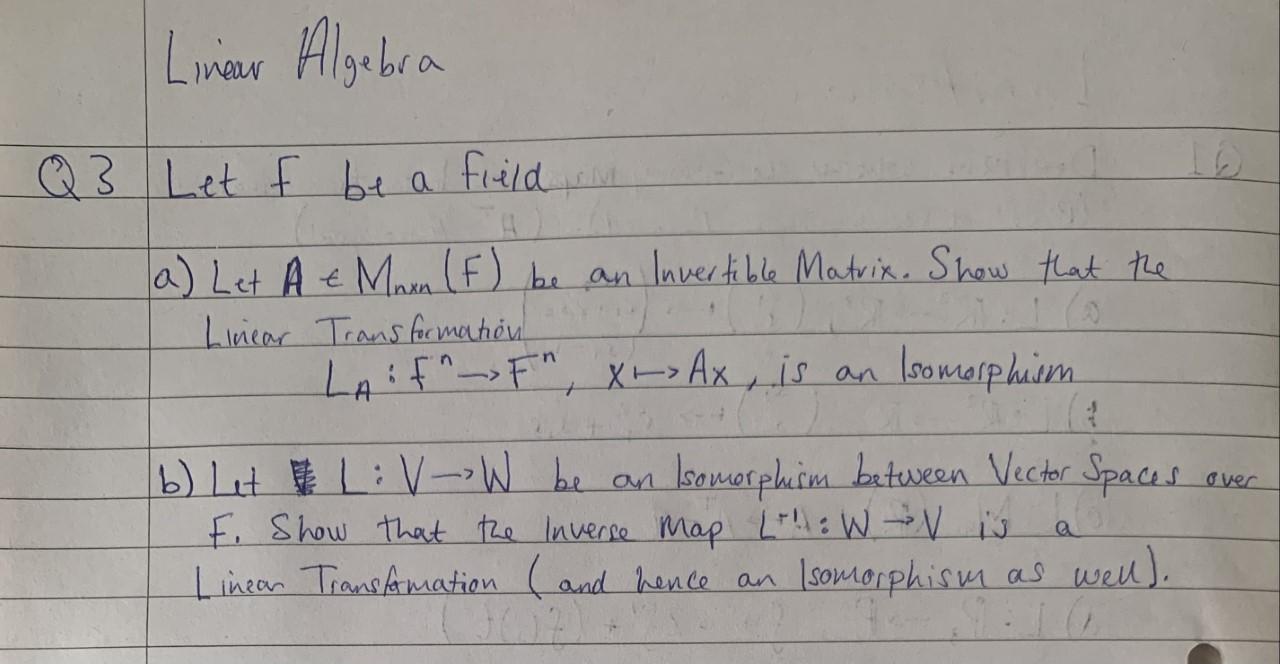 Linear Algebra
Q3 Let F be a field
a) Let A ∈ Mnxn (F) be an Invertible Matrix. Show that the
Linear Transformation
L_A : F^n → F^n, x ↦ Ax, is an Isomorphism
b) Let L : V → W be an Isomorphism between Vector Spaces over
F. Show that the Inverse Map L^-1 : W → V is a
Linear Transformation (and hence an Isomorphism as well).